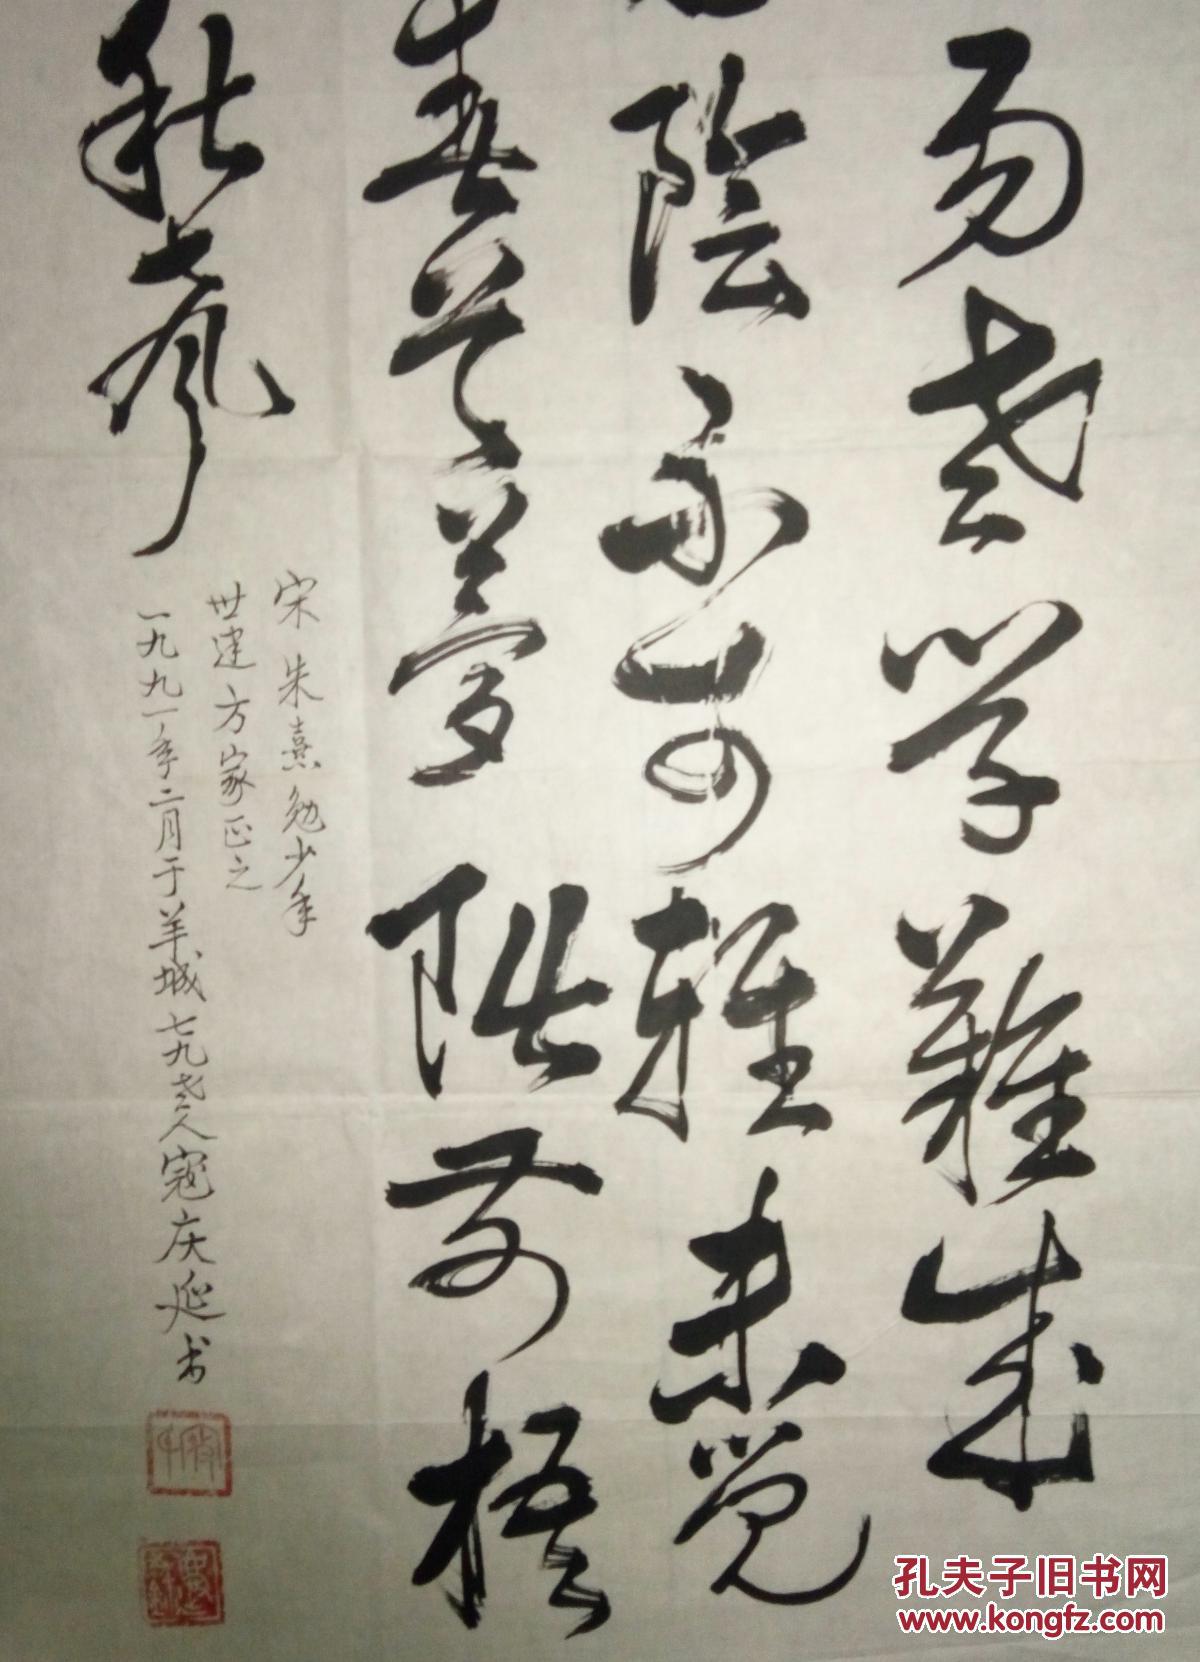 易老学难成
陰不可轻未觉
春草梦阶前梧
秋声
宋朱熹勉少年
世建方家正之
一九九一年二月于羊城七九老人寇庆延书
孔夫子旧书网
www.kongfz.com